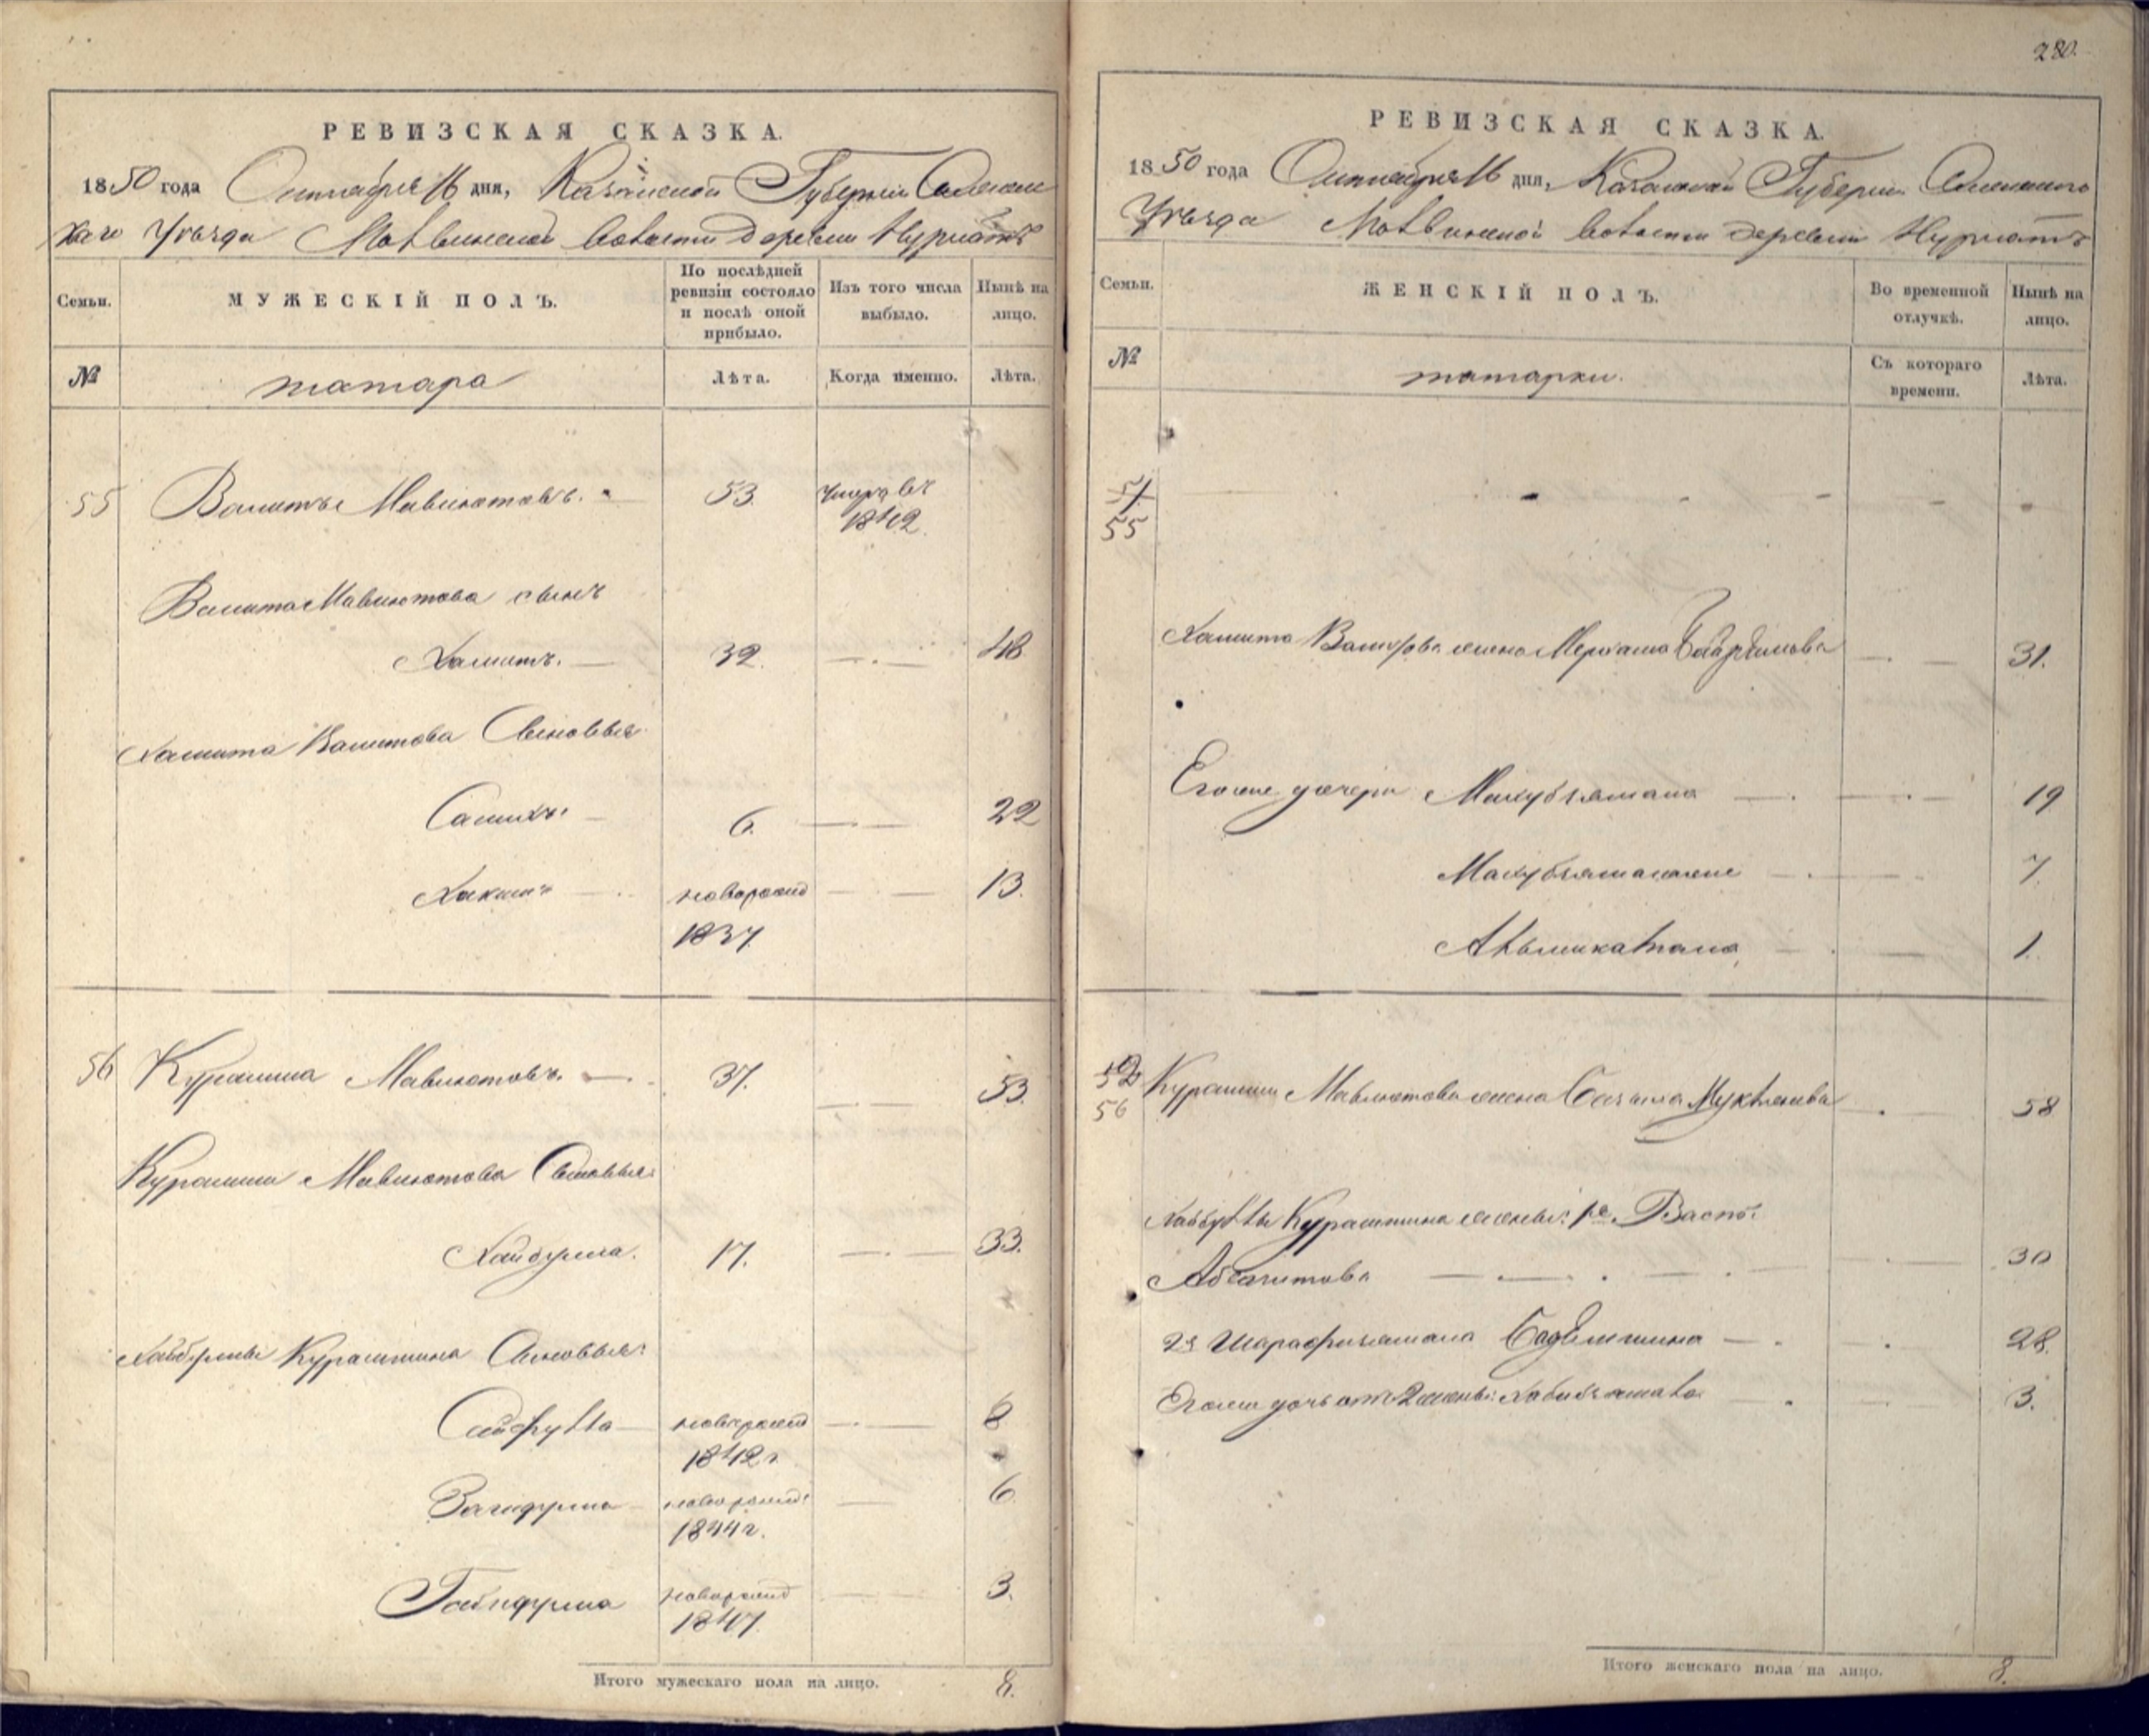 280.
РЕВИЗСКАЯ СКАЗКА.
1850 года Октября 16 дня, Казанской Губернии
Уѣзда волости деревни Нурлатъ
Семьи.
МУЖЕСКІЙ ПОЛЪ.
По послѣдней ревизіи состояло и послѣ оной прибыло.
Изъ того числа выбыло.
Нынѣ на лицо.
№
татара
Лѣта.
Когда именно.
Лѣта.
55 Валитъ Мавлютовъ. 53. умеръ въ
1842.
Валита Мавлютова сынъ
Хамитъ. 32. 48
Хамита Валитова Сыновья
Салихъ. 6. 22
Хаким новорожд 13.
1837
56 Курамша Мавлютовъ. 37. 53.
Курамши Мавлютова Сыновья:
Хайбулла. 17. 33.
Хайбуллы Курамшина Сыновья:
Сайфулла новорожд 8
1842 г
Загидулла новорожд: 6
1844 г.
Габидулла новорожд 3.
1847.
Итого мужескаго пола на лицо. 8.
РЕВИЗСКАЯ СКАЗКА.
1850 года Октября 16 дня, Казанской Губернии
Уѣзда волости деревни Нурлатъ
Семьи.
ЖЕНСКІЙ ПОЛЪ.
Во временной отлучкѣ.
Нынѣ на лицо.
№
татарки.
Съ котораго времени.
Лѣта.
51
55
Хамита Валитова жена 31.
Его же дочери 19
7.
1.
52
56
Курамши Мавлютова жена 58
Хайбуллы Курамшина жены: 1е.
30
2я 28.
Его же дочь от 2 жены: 3.
Итого женскаго пола на лицо. 8.